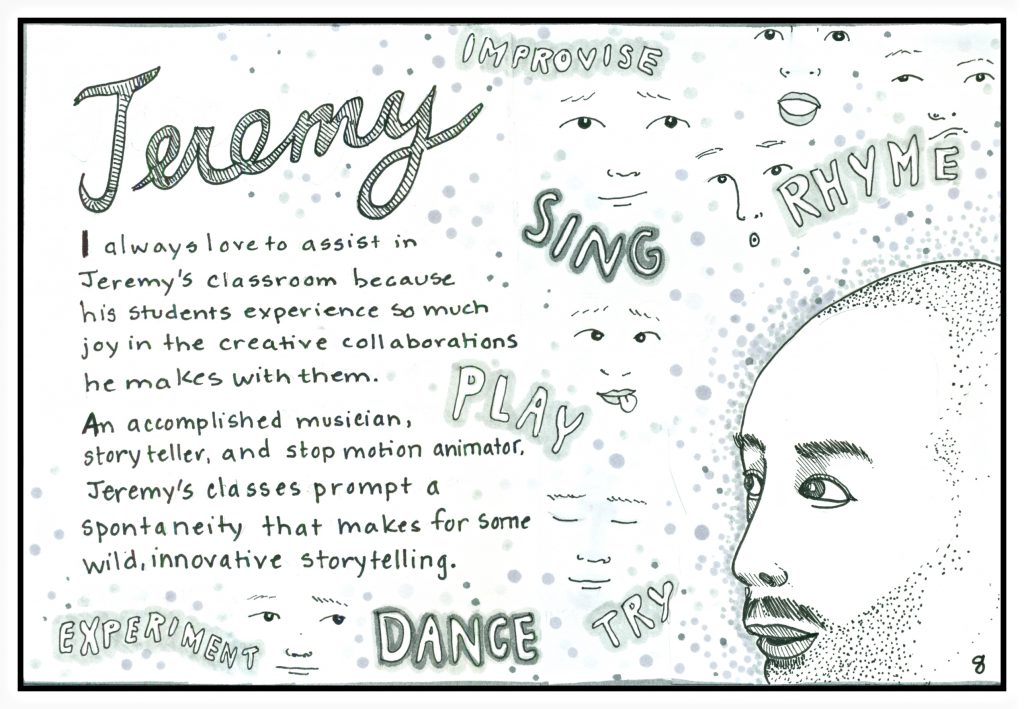 IMPROVISE
Jeremy
RHYME
SING
I always love to assist in
Jeremy's classroom because
his students experience so much
joy in the creative collaborations
he makes with them.
PLAY
An accomplished musician,
storyteller, and stop motion animator,
Jeremy's classes prompt a
spontaneity that makes for some
wild, innovative storytelling.
TRY
EXPERIMENT
DANCE
8